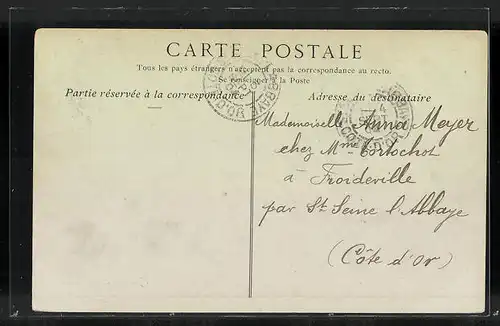 CARTE POSTALE
Tous les pays étrangers n'acceptent pas la correspondance au recto.
Se renseigner à la Poste
Partie réservée à la correspondance
Adresse du destinataire
Mademoiselle Anna Meyer
chez Mme Tortochot
à Froideville
par St Seine l'Abbaye
(Côte d'Or)
D'OR
CÔTE D'OR